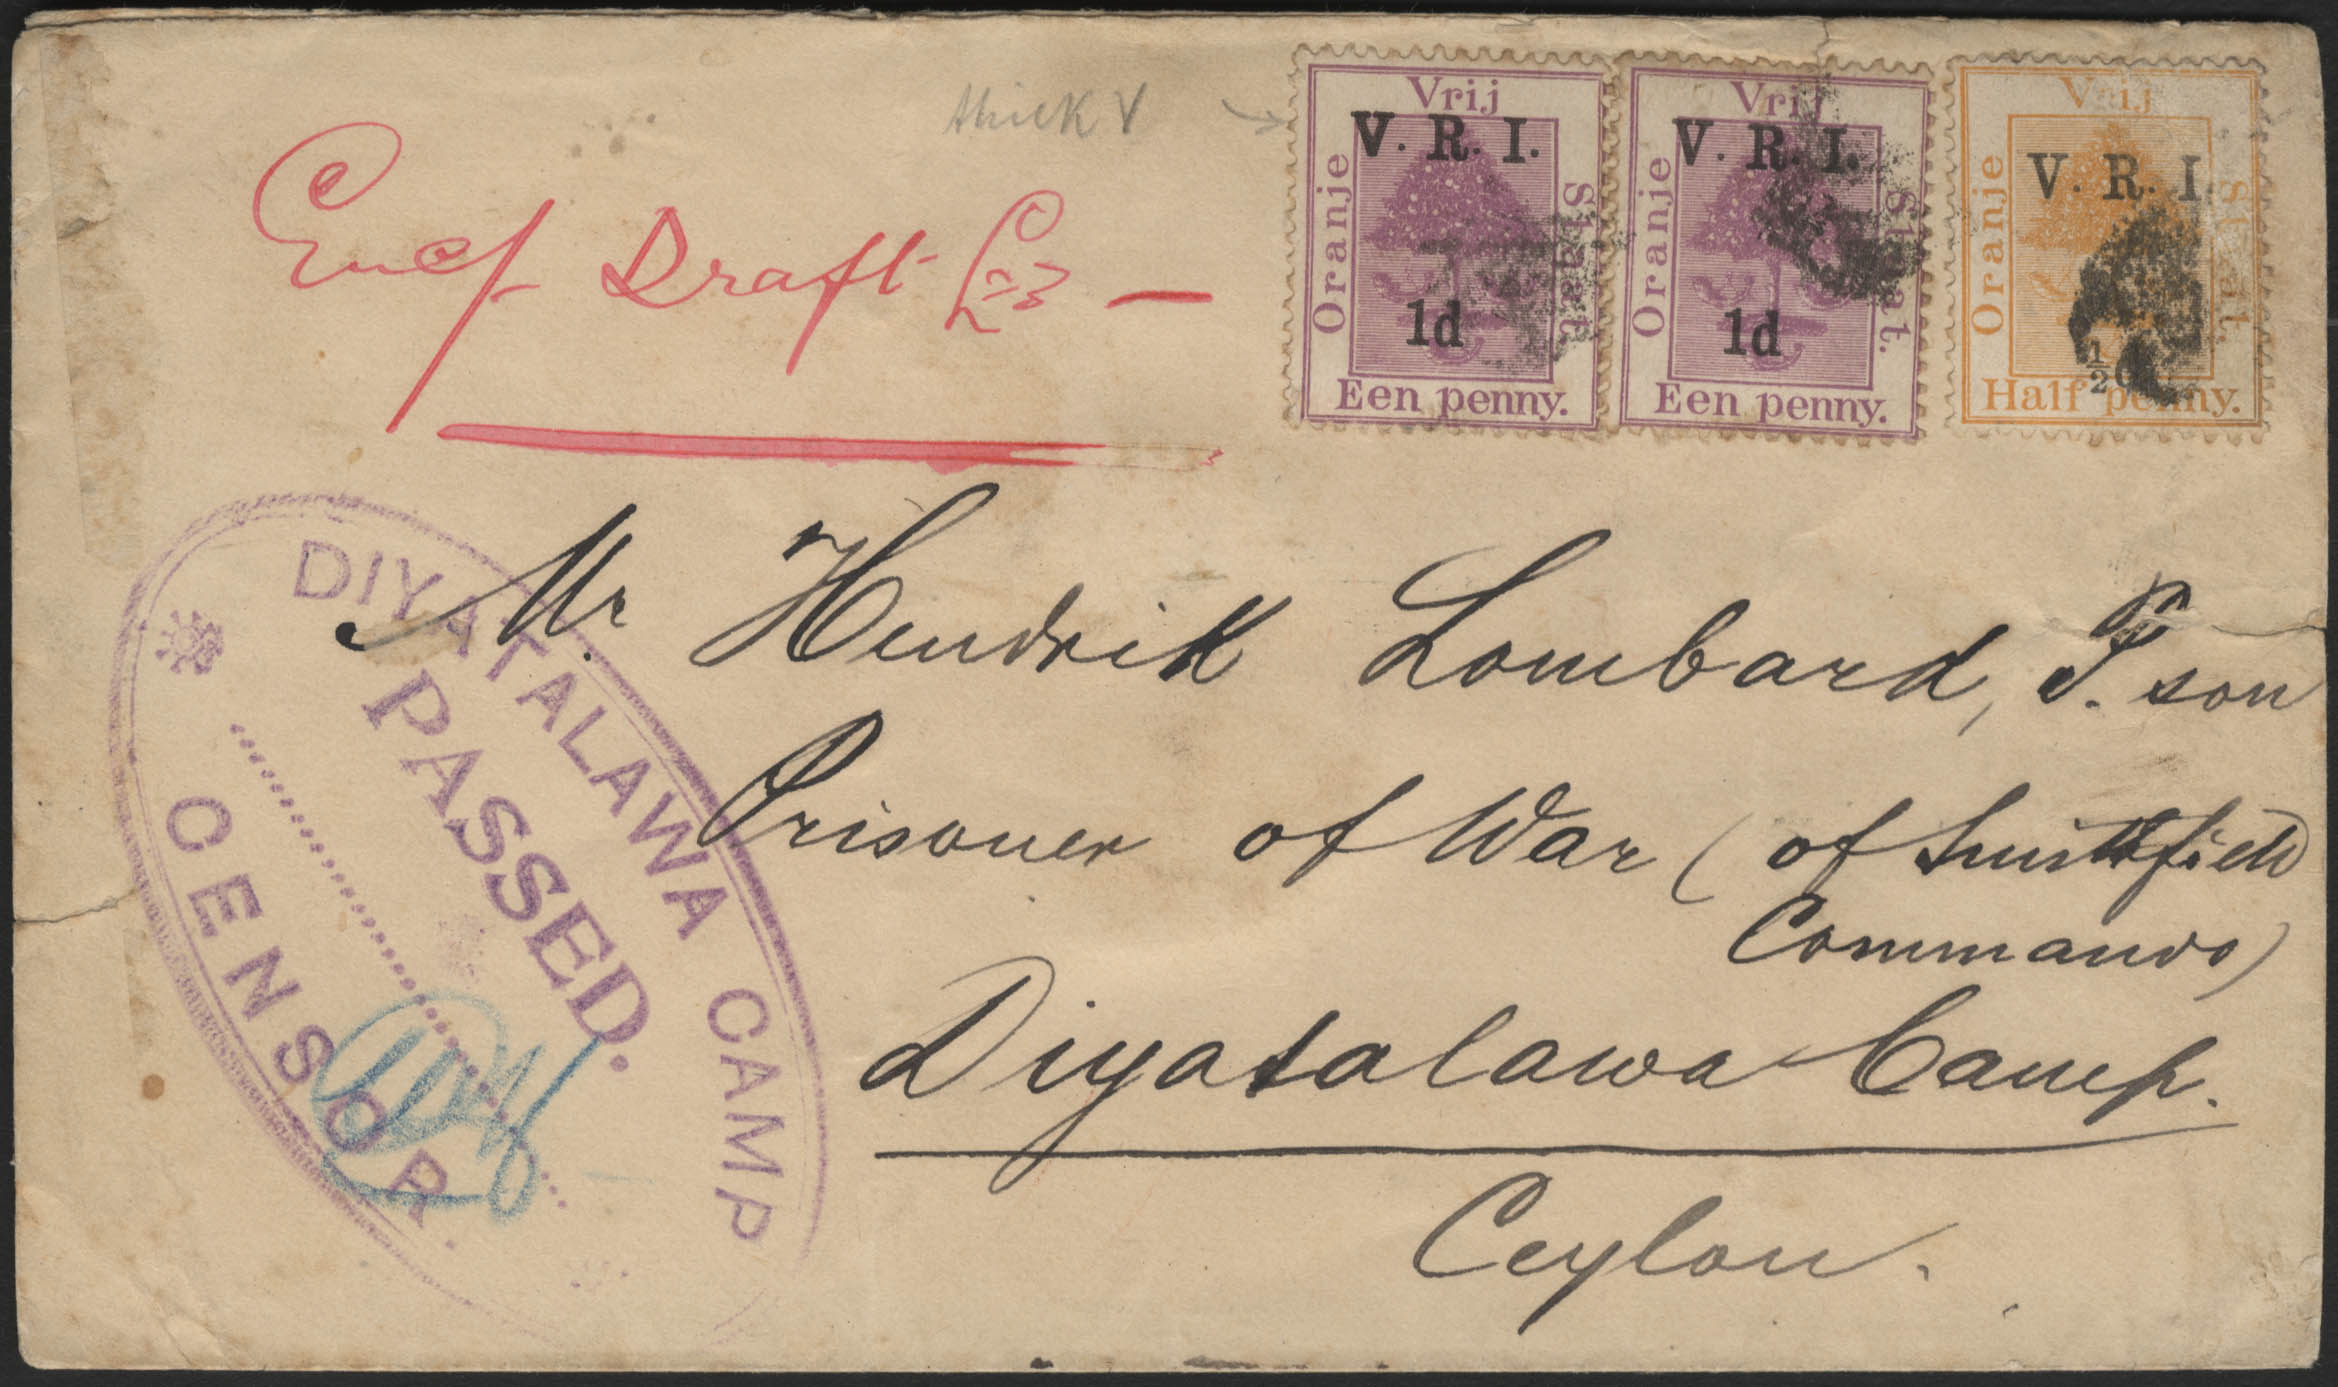 thick V
Encl Draft £3 —
Vrij
Oranje
Staat
V. R. I.
1d
Een penny.
Vrij
Oranje
Staat.
V. R. I.
1d
Een penny.
Vrij
Oranje
Staat.
V. R. I.
½
Half penny.
Mr. Hendrik Lombard, P. son
Prisoner of War (of Smithfield
Commando)
Diyatalawa Camp.
Ceylon.
DIYATALAWA CAMP
PASSED.
CENSOR.